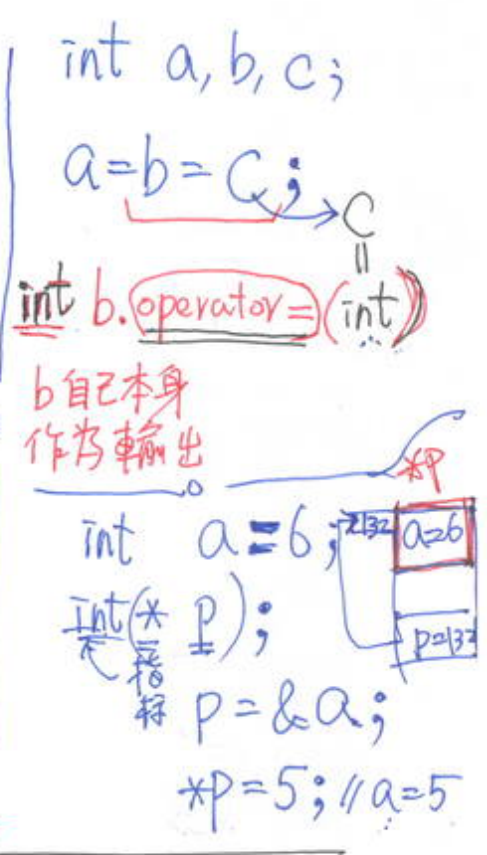 int a, b, c;
a=b=c;
c
=
int b.operator=(int)
b自己本身
作為輸出
*p
int a=6;
132
a=6
int(* p);
指
标
p=132
p=&a;
*p=5; //a=5